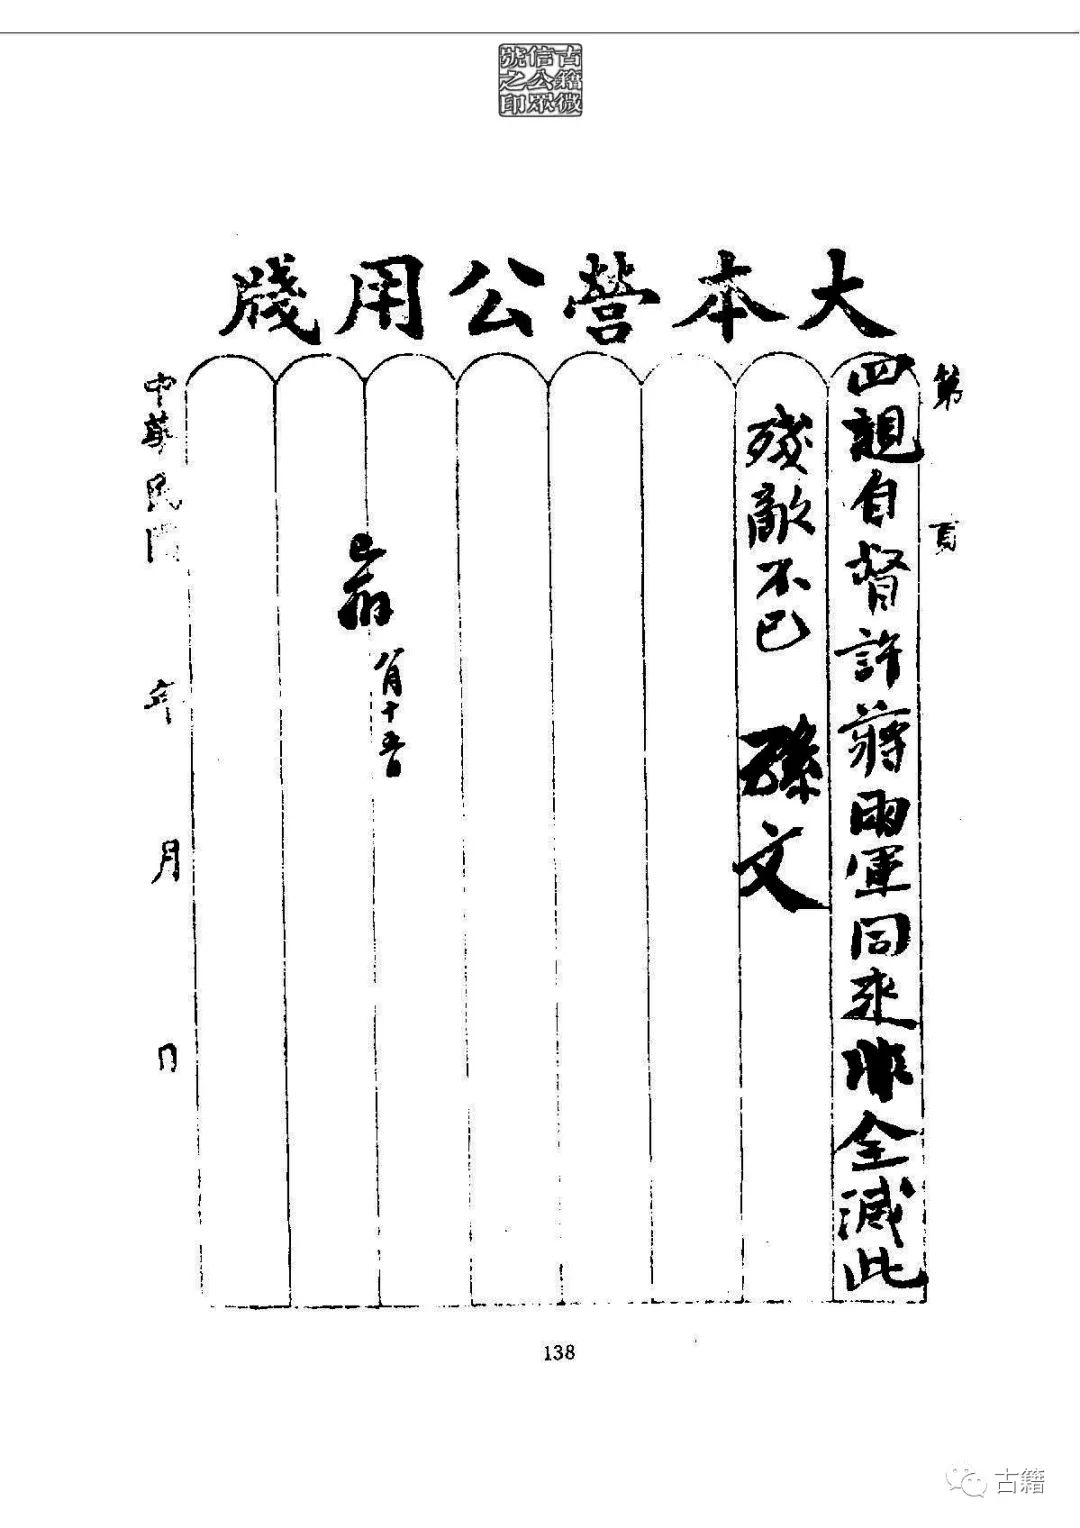 古籍微
信公眾
號之印
大本營公用牋
第 頁
四親自督許蔣兩軍同來非全滅此
殘敵不已 孫文
八月十五日
中華民國 年 月 日
138
古籍